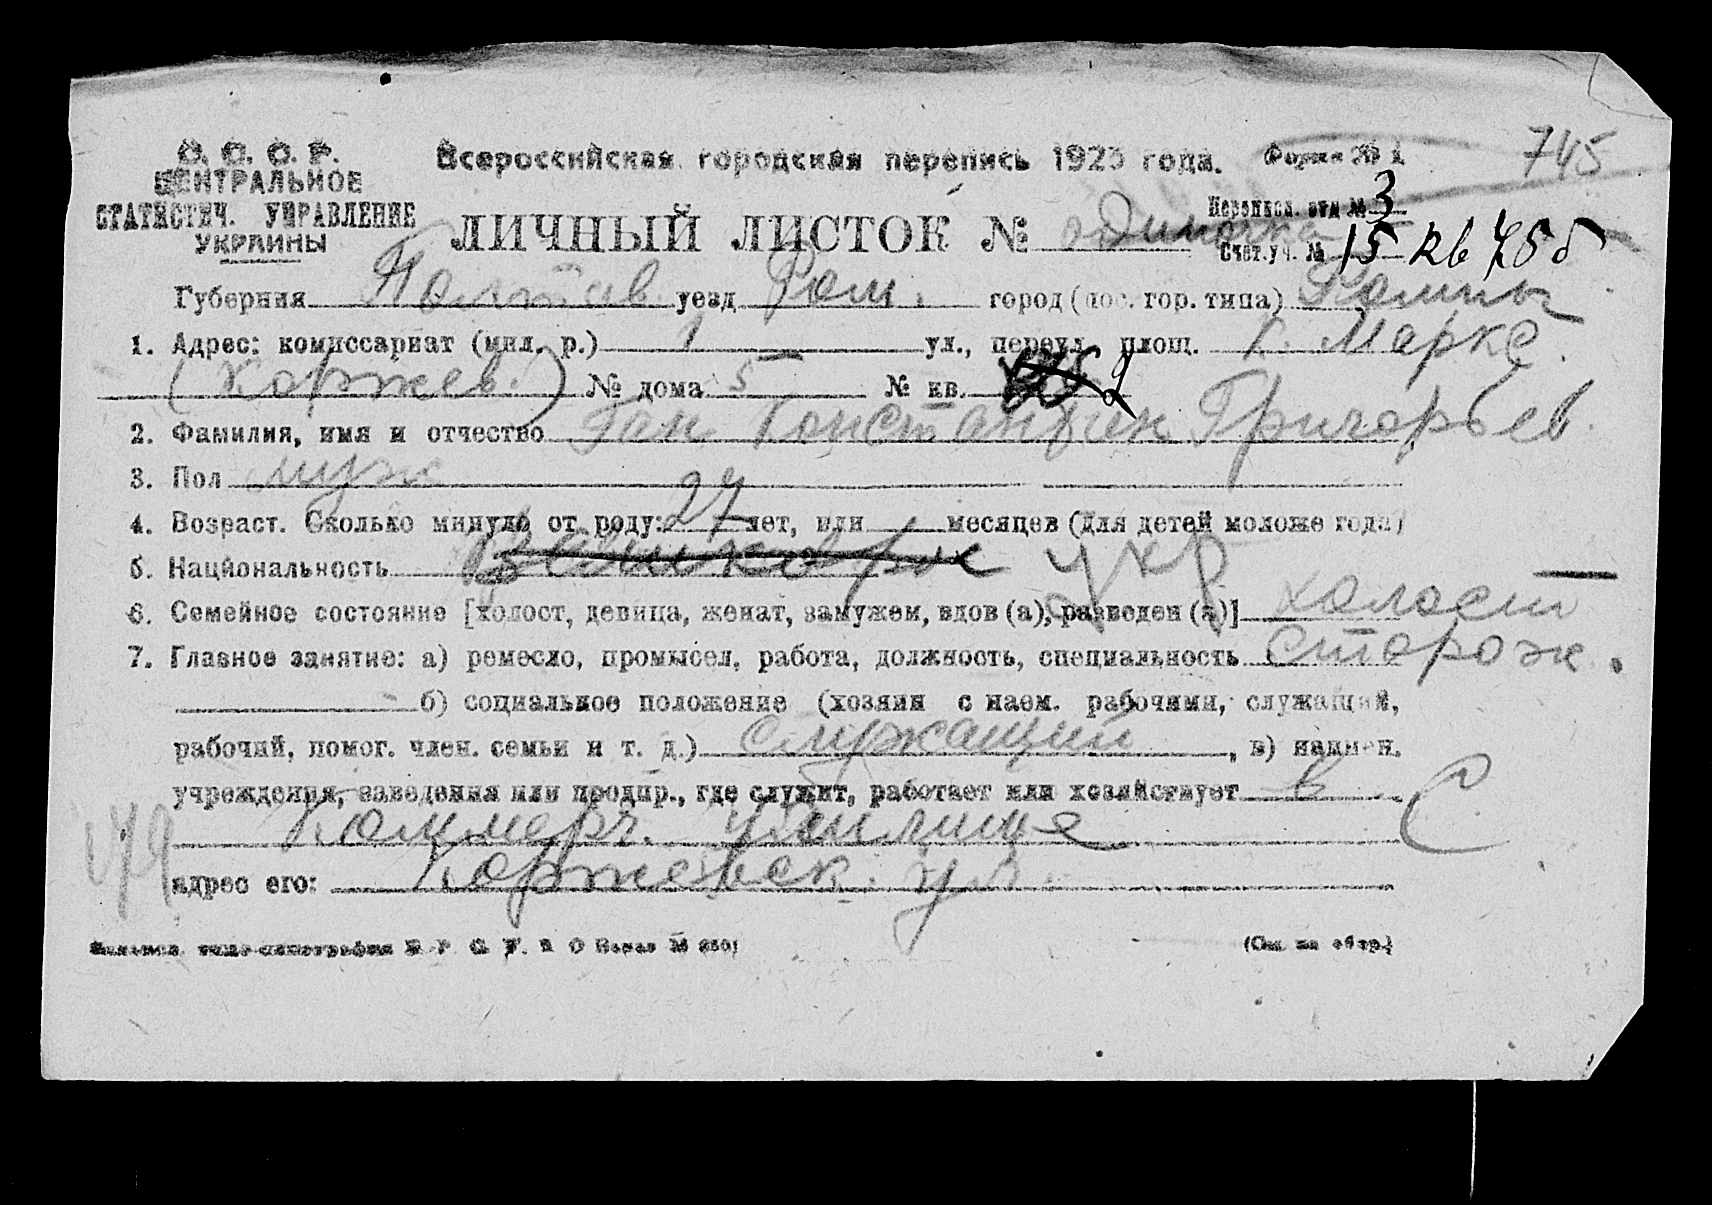 С. С. С. Р.
ЦЕНТРАЛЬНОЕ
СТАТИСТИЧ. УПРАВЛЕНИЕ
УКРАИНЫ
Всероссийская городская перепись 1923 года.
Форма № 1
745
ЛИЧНЫЙ ЛИСТОК № одиночка
Переписн. отд № 3
Счет.уч. № 15 кв 785
Губерния Полтав уезд Ром. город (пос. гор. типа) Ромны
1. Адрес: комиссариат (мил. р.) 1 ул., переул. площ. К. Маркс.
(Коржев.) № дома 5 № кв. 2
2. Фамилия, имя и отчество Ган Константин Григорьев.
3. Пол муж
4. Возраст. Сколько минуло от роду: 27 лет, или месяцев (для детей моложе года)
5. Национальность укр
6. Семейное состояние [холост, девица, женат, замужем, вдов (а), разведен (а)] холост
7. Главное занятие: а) ремесло, промысел, работа, должность, специальность сторож.
б) социальное положение (хозяин с наем. рабочими, служащий,
рабочий, помог. член. семьи и т. д.) служащий, в) наимен.
учреждения, заведения или предпр., где служит, работает или хозяйствует в
Коммерч. училище
С
479
адрес его: Коржевск. ул.
(См. на обор.)